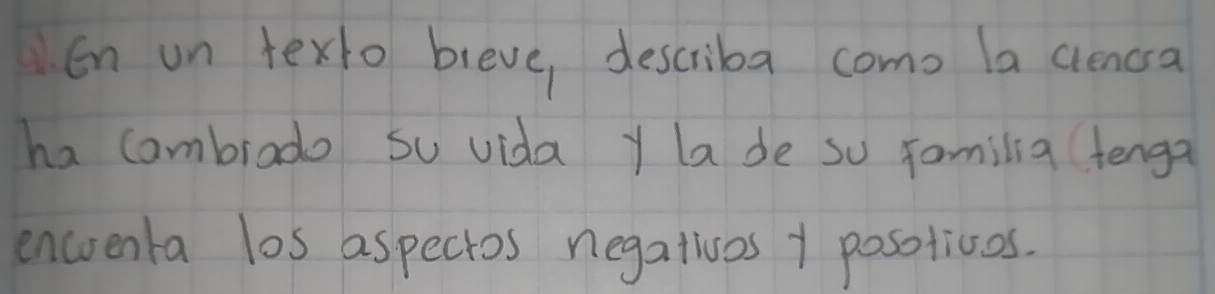 1. En un texto breve, describa como la ciencia
ha cambiado su vida y la de su familia (tenga
encuenta los aspectos negativos y posotivos.